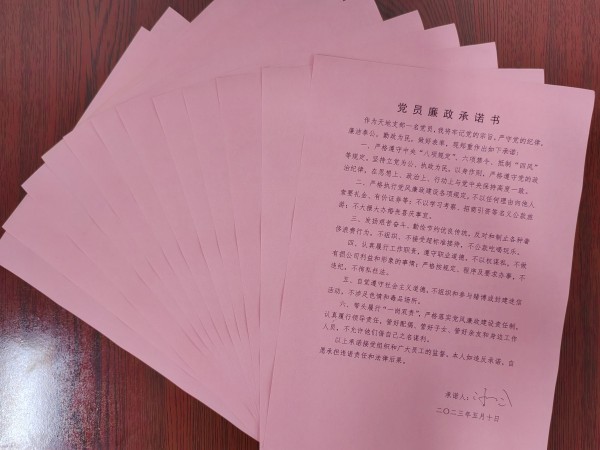 党员廉政承诺书
作为天地支部一名党员，我将牢记党的宗旨，严守党的纪律，
廉洁奉公，勤政为民，做好表率，现郑重作出如下承诺：
一、严格遵守中央“八项规定”、六项禁令、抵制“四风”
等规定，坚持立党为公、执政为民，以身作则，严格遵守党的政
治纪律，在思想上、政治上、行动上与党中央保持高度一致。
二、严格执行党风廉政建设各项规定，不以任何理由向他人
索要礼金、有价证券等；不以学习考察、招商引资等名义公款旅
游；不大操大办婚丧喜庆事宜。
三、发扬艰苦奋斗、勤俭节约优良传统，反对和制止各种奢
侈浪费行为，不组织、不接受超标准接待，不公款吃喝玩乐。
四、认真履行工作职责，遵守职业道德，不以权谋私，不做
有损公司利益和形象的事情；严格按规定、程序及要求办事，不
违纪，不徇私枉法。
五、自觉遵守社会主义道德，不组织和参与赌博或封建迷信
活动，不涉足色情和毒品场所。
六、带头履行“一岗双责”，严格落实党风廉政建设责任制，
认真履行领导责任，管好配偶、管好子女、管好亲友和身边工作
人员，不允许他们借自己之名谋利。
以上承诺接受组织和广大员工的监督，本人如违反承诺，自
愿承担违诺责任和法律后果。
承诺人：
二〇二三年五月十日